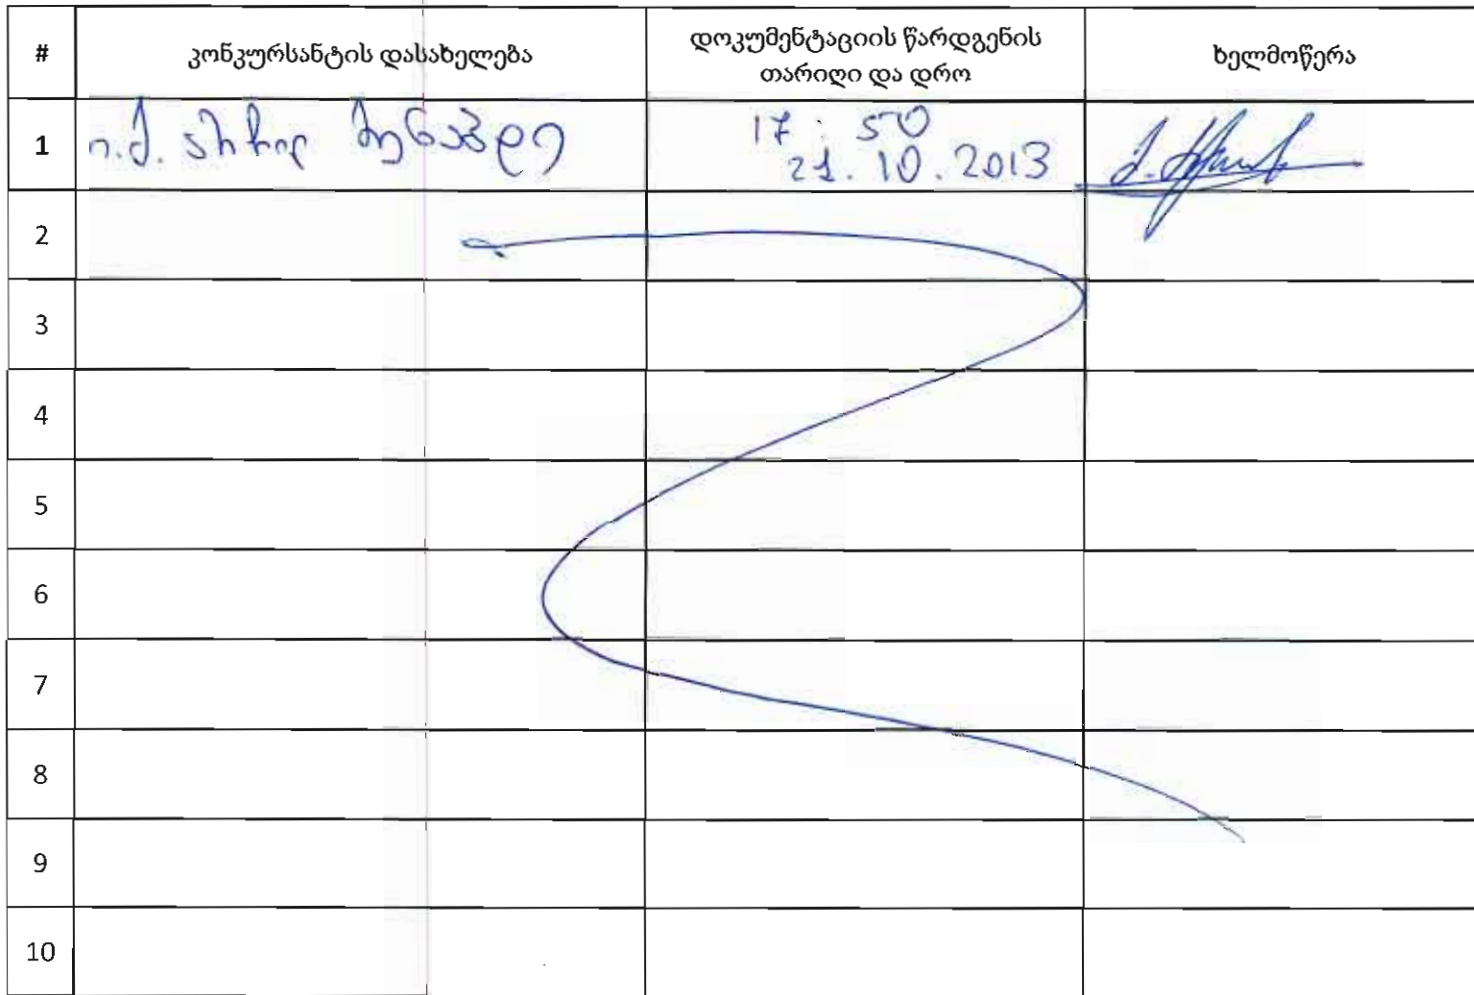 # კონკურსანტის დასახელება დოკუმენტაციის წარდგენის თარიღი და დრო ხელმოწერა
1 ი.მ. არჩილ 17:50
21.10.2013
2
3
4
5
6
7
8
9
10